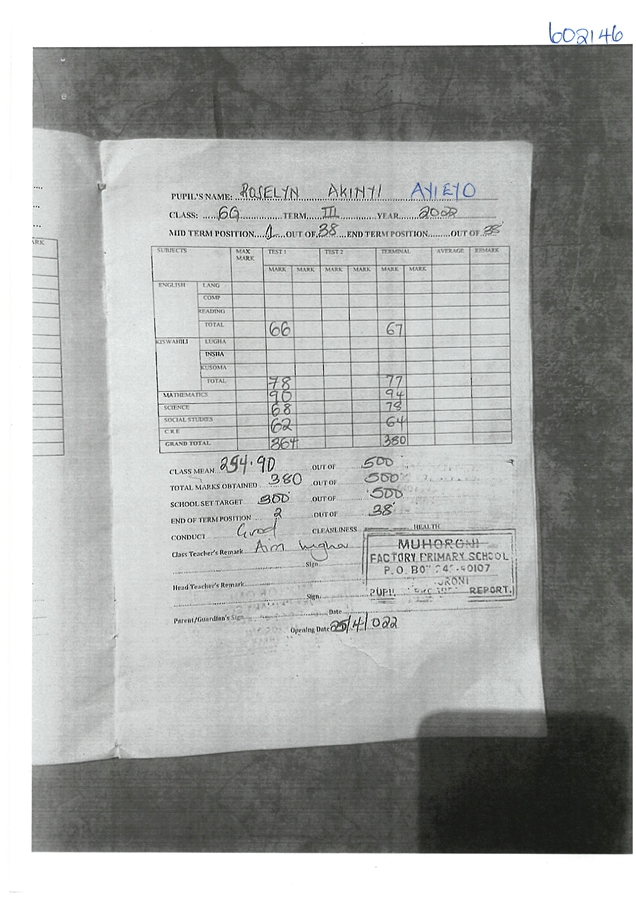 602146
PUPIL'S NAME: ROSELYN AKINYI AYIEYO
CLASS: 6G TERM III YEAR 2022
MID TERM POSITION 1 OUT OF 38 END TERM POSITION OUT OF 38
SUBJECTS MAX MARK TEST 1 TEST 2 TERMINAL AVERAGE REMARK
MARK MARK MARK MARK MARK MARK
ENGLISH LANG
COMP
READING
TOTAL 66 67
KISWAHILI LUGHA
INSHA
KUSOMA
TOTAL 78 77
MATHEMATICS 90 94
SCIENCE 68 78
SOCIAL STUDIES 62 64
C.R.E
GRAND TOTAL 364 380
CLASS MEAN 254.90 OUT OF 500
TOTAL MARKS OBTAINED 380 OUT OF 500
SCHOOL SET TARGET 300 OUT OF 500
END OF TERM POSITION 2 OUT OF 38
CONDUCT Good CLEANLINESS HEALTH
Class Teacher's Remark Aim higher
Sign
MUHORONI
FACTORY PRIMARY SCHOOL
P.O. BOX 40107
Head Teacher's Remark
PUPIL REPORT.
Sign
Parent/Guardian's Sign Date
Opening Date 25/4/022